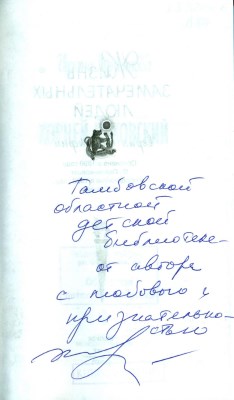 ЖИЗНЬ
ЗАМЕЧАТЕЛЬНЫХ
ЛЮДЕЙ
Тамбовской
областной
детской
библиотеке –
от автора
с любовью и
признательно-
стью